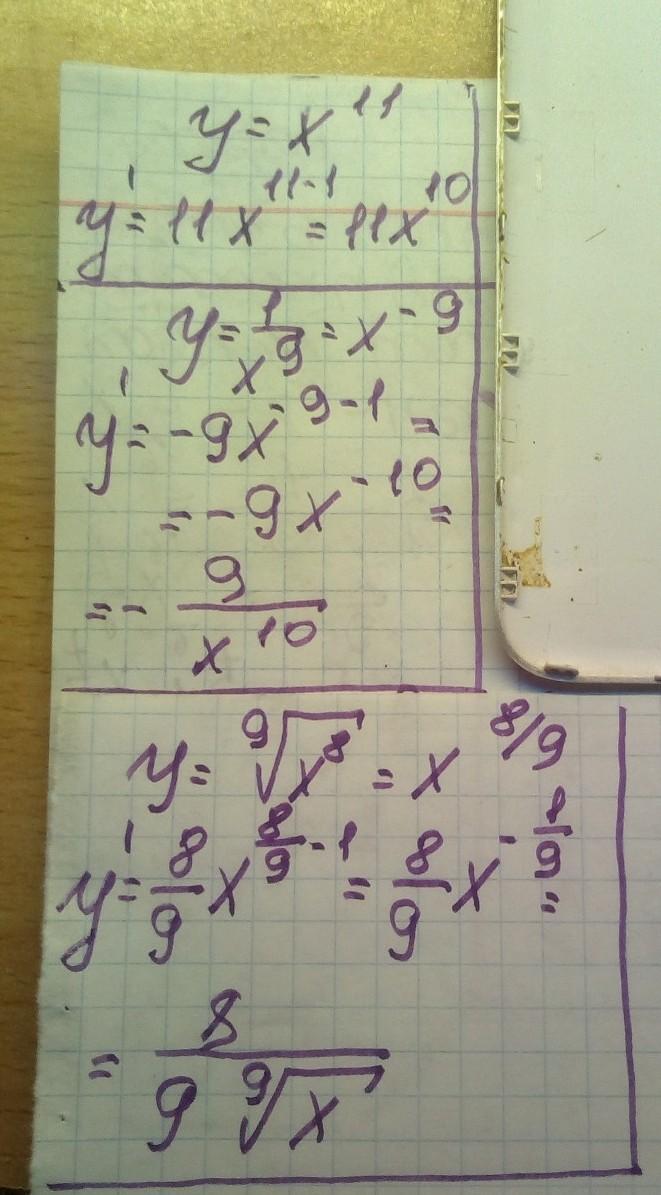 y = x¹¹
y' = 11x¹¹⁻¹ = 11x¹⁰
y = 1/x⁹ = x⁻⁹
y' = -9x⁻⁹⁻¹ =
= -9x⁻¹⁰ =
= - 9/x¹⁰
y = ⁹√x⁸ = x^8/9
y' = 8/9 x^(8/9 - 1) = 8/9 x^(-1/9) =
= 8/(9 ⁹√x)